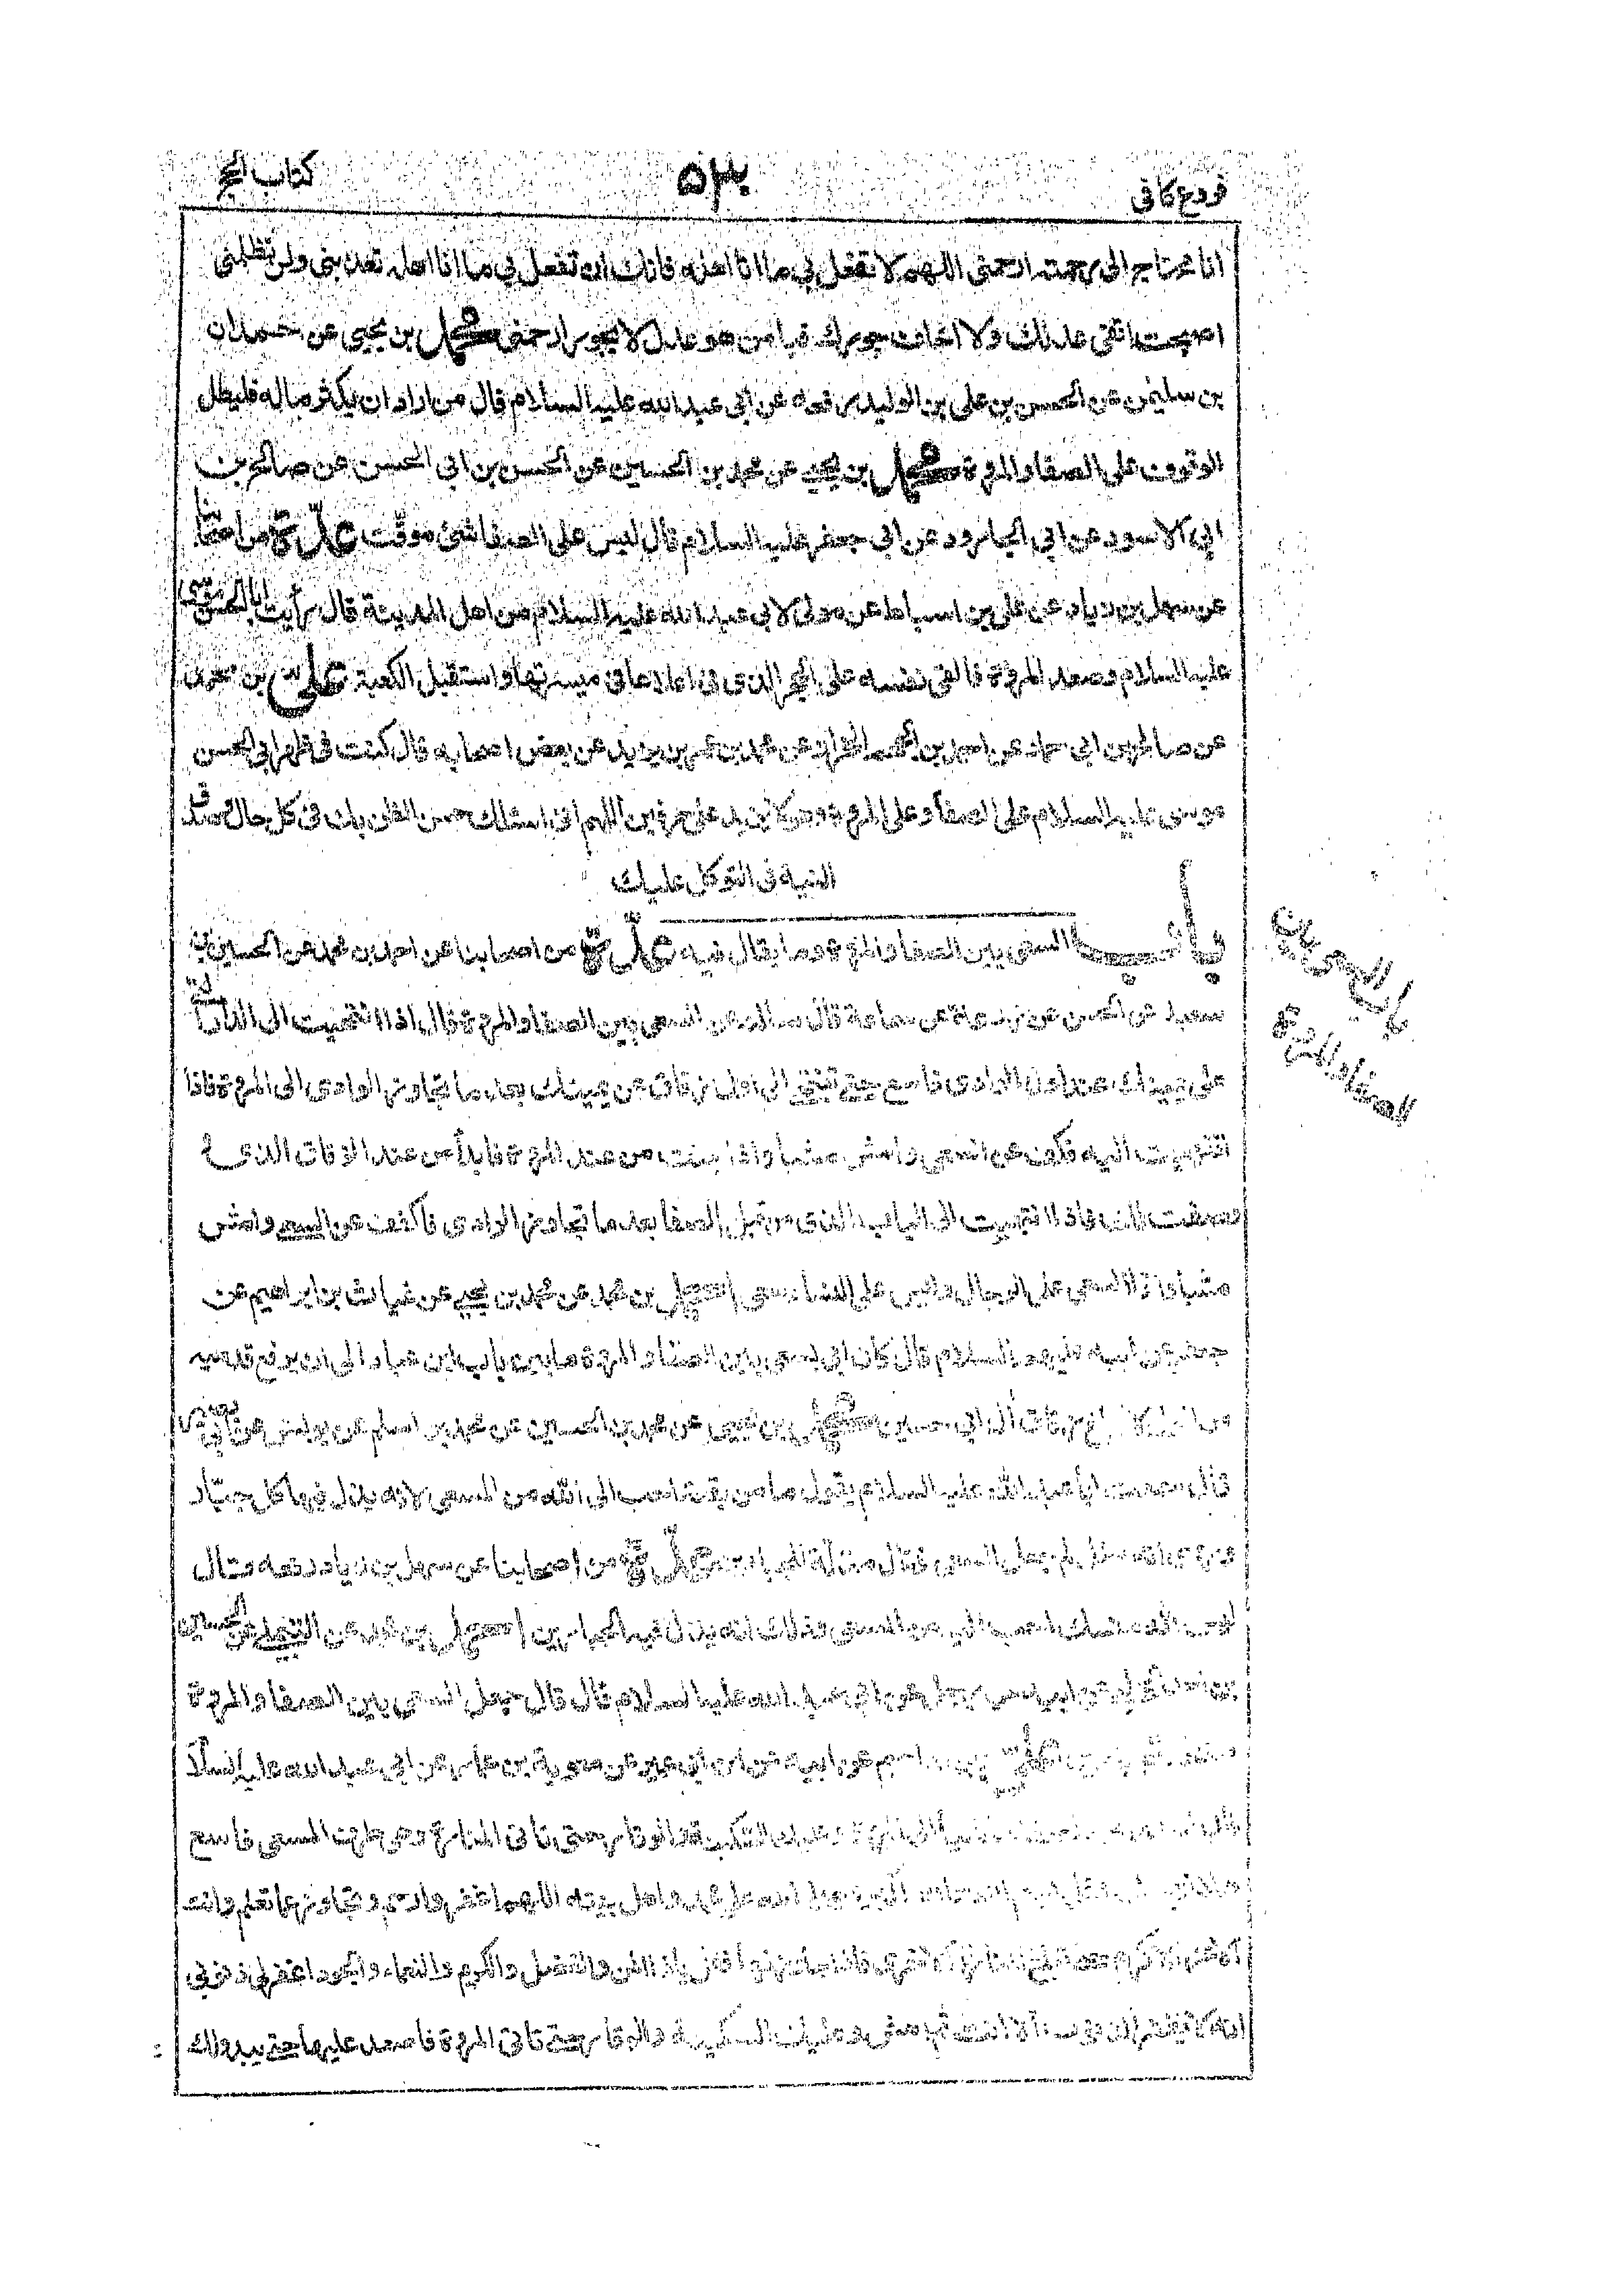 فروع كافي
٥٣٠
كتاب الحج
انا محتاج الى رحمته ارحمنى اللهم لا تفعل بي ما انا اهله فانك ان تفعل بي ما انا اهله تعذبنى ولن تظلمنى
اصبحت اتقى عدلك ولا اخاف جورك فيا من هو عدل لا يجور ارحمنى محمد بن يحيى عن حمدان
بن سليمن عن الحسن بن على بن الوليد رفعه عن ابى عبدالله عليه السلام قال من اراد ان يكثر ماله فليطل
الوقوف على الصفا والمروة محمد بن يحيى عن محمد بن الحسين عن الحسن بن ابى الحسن عن صالح بن
ابي الاسود عن ابي الجارود عن ابي جعفر عليه السلام قال ليس على الصفا شئ موقت عدّة من اصحابنا
عن سهل بن زياد عن على بن اسباط عن مولى لابى عبد الله عليه السلام من اهل المدينة قال رأيت ابا الحسن موسى
عليه السلام وصعد المروة فالقى نفسه على الحجر الذى فى اعلاها فى ميسرتها واستقبل الكعبة علي بن محمد
عن صالح بن ابى حماد عن احمد بن الجهم الخزاز عن محمد بن عمر بن يزيد عن بعض اصحابه قال كنت فى ظهر ابى الحسن
موسى عليه السلام على الصفا وعلى المروة وهو لا يزيد على حرفين اللهم انى اسئلك حسن الظن بك فى كل حال وصدق
النية فى التوكل عليك
باب السعى بين الصفا والمروة وما يقال فيه عدّة من اصحابنا عن احمد بن محمد عن الحسين بن
سعيد عن الحسن عن زرعة عن سماعة قال سألته عن السعى بين الصفا والمروة قال اذا انتهيت الى الدار التي
على يمينك عند اول الوادى فاسع حتى تنتهى الى اول زقاق عن يمينك بعد ما تجاوز الوادى الى المروة فاذا
انتهيت اليه فكف عن السعى وامش مشيا واذا جئت من عند المروة فابدأ من عند الزقاق الذى
وصفت لك فاذا انتهيت الى الباب الذى من قبل الصفا بعد ما تجاوز الوادى فاكفف عن السعى وامش
مشيا وانما السعى على الرجال وليس على النساء سعى احمد بن محمد عن محمد بن يحيى عن غياث بن ابراهيم عن
جعفر عن ابيه عليهما السلام قال كان ابى يسعى بين الصفا والمروة ما بين باب ابن عباد الى ان يرفع قدميه
من الى زقاق آل ابي حسين محمد بن يحيى عن محمد بن الحسين عن محمد بن اسلم عن يونس عن ابى بصير
قال سمعت ابا عبد الله عليه السلام يقول ما من بقعة احب الى الله من المسعى لانه يذل فيها كل جبّار
وروى انه سئل لم جعل السعى فقال مذلة للجبارين عدّة من اصحابنا عن سهل بن زياد رفعه قال
ليس لله منسك احب اليه من السعى وذلك انه يذل فيه الجبارين احمد بن محمد عن التيملى عن الحسين
بن احمد الحلبى عن ابيه عن رجل عن ابى عبد الله عليه السلام قال قال جعل السعى بين الصفا والمروة
مذلة للجبارين علي بن ابراهيم عن ابيه عن ابن ابى عمير عن معوية بن عمار عن ابى عبد الله عليه السلام
قال السكينة والوقار حتى تاتى المنارة وهى طرف المسعى فاسع
صلى الله على محمد واهل بيته اللهم اغفر وارحم وتجاوز عما تعلم وانت
الاعز الاكرم حتى تبلغ المنارة الاخرى فاذا جاوزتها فقل يا ذا المن والفضل والكرم والنعماء والجود اغفر لى ذنوبى
انه لا يغفر الذنوب الا انت ثم امش وعليك السكينة والوقار حتى تاتى المروة فاصعد عليها حتى يبدو لك
باب السعى بين
الصفا والمروة